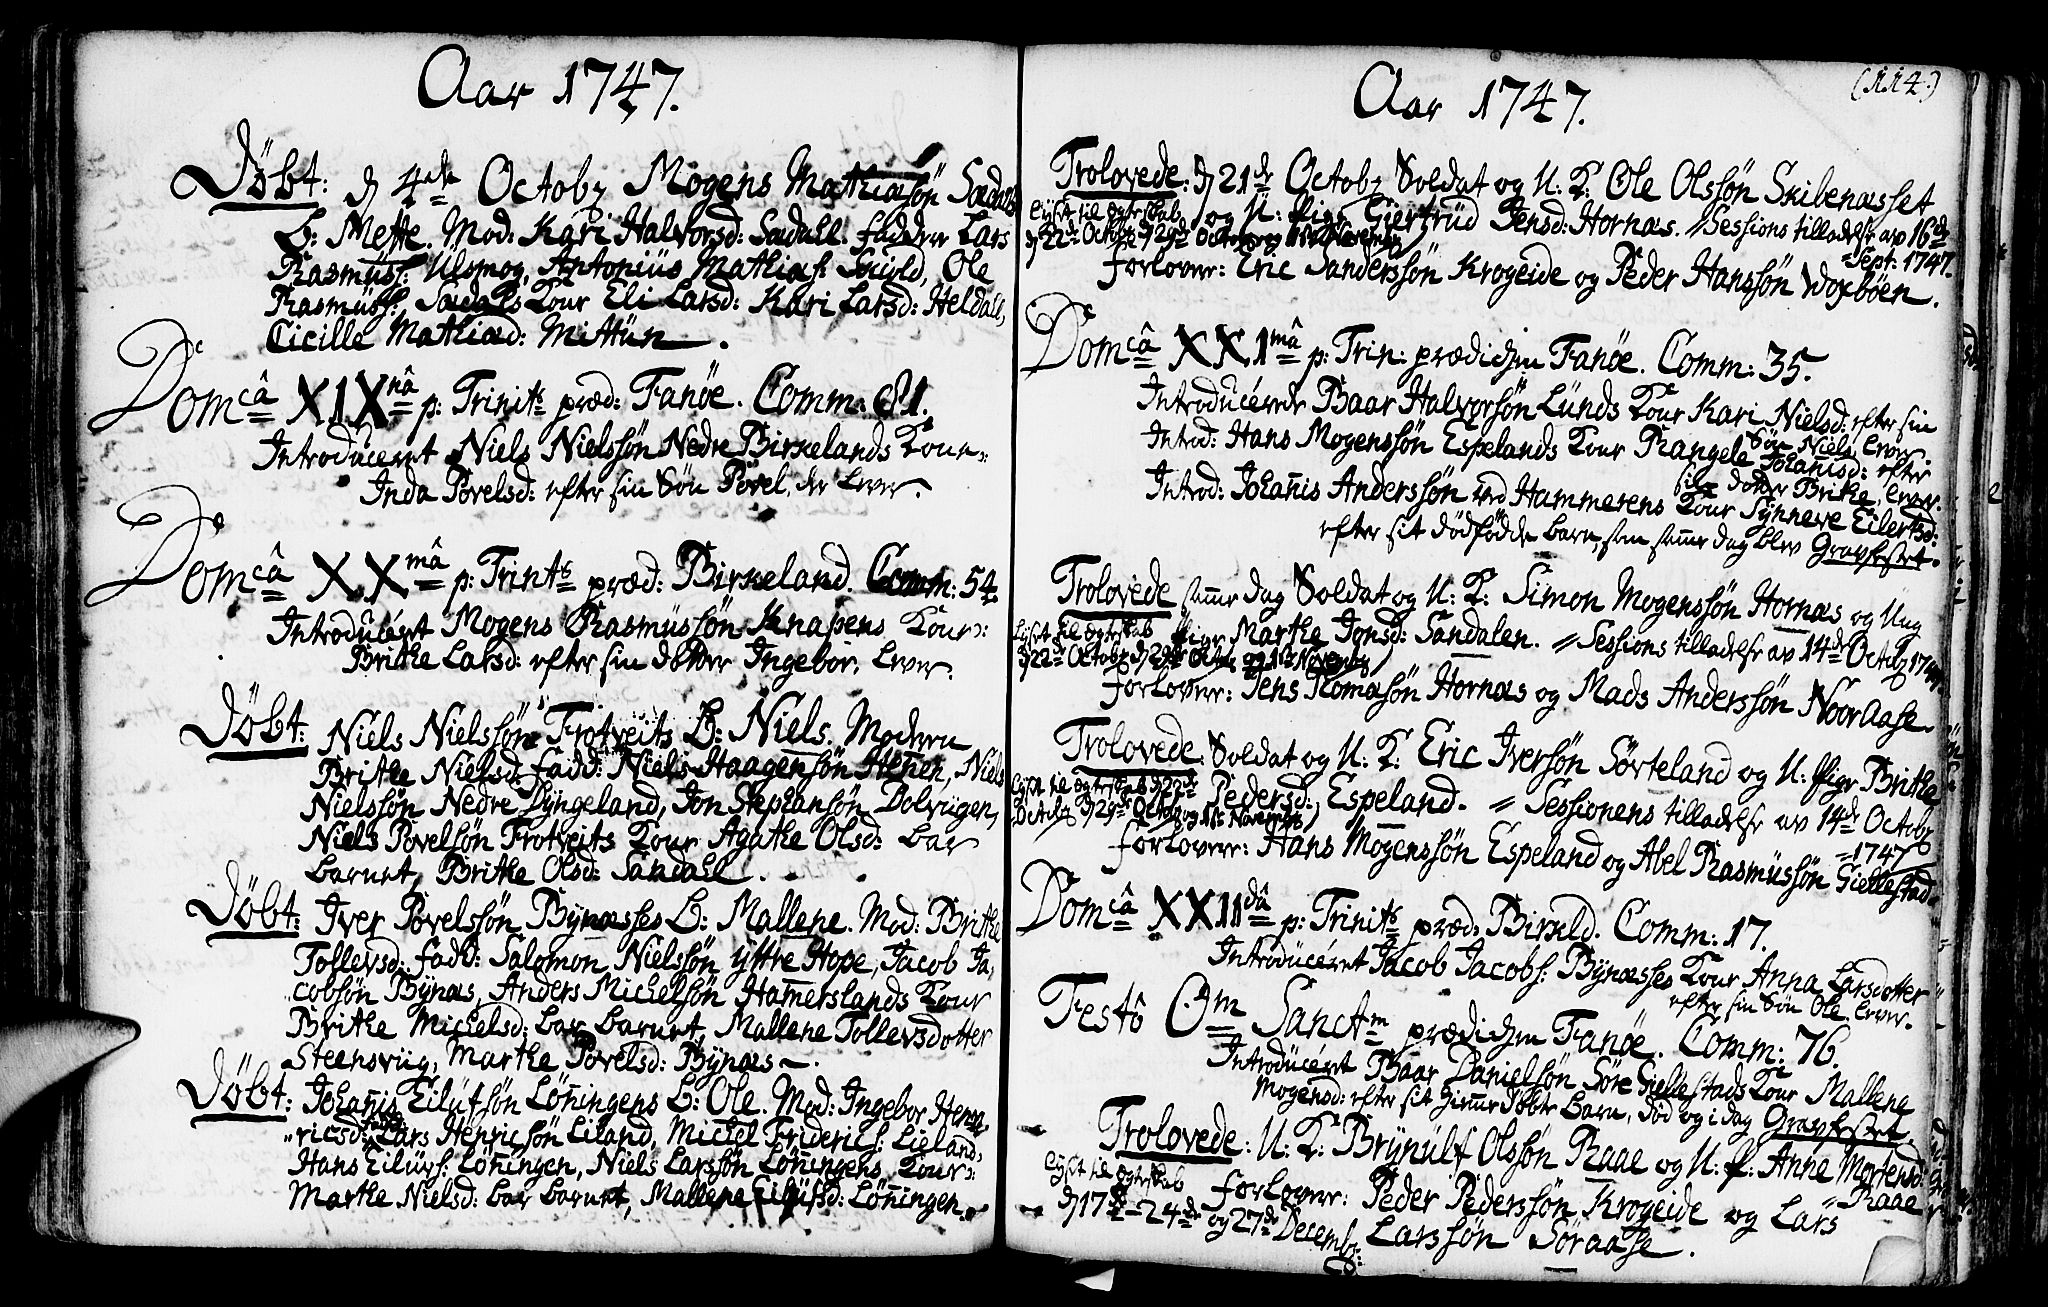 Aar 1747.
Døbt: d 4de Octobr Mogens Mathiæsøn Sædals
B: Mette. Mod: Kari Halvorsd: Sædall. Faddere Lars
Rasmüss: Ulsmog, Antoniüs Mathiass: Skiold, Ole
Rasmüss: Sædals Kone Eli Larsd: Kari Larsd: Heldall,
Cicille Mathiæd: Mittün.
Domcâ XIXnâ p: Trinits præd: Fanöe. Comm: 81.
Introduceret Niels Nielssøn Nedre Birkelands Kone:
Inda Povelsd: efter sin Søn Povel, der lever.
Domcâ XXmâ p: Trints præd: Birkeland. Comm: 54
Introduceret Mogens Rasmüssøn Knapens Kone:
Brithe Larsd: efter sin dotter Ingebor, lever.
Døbt: Niels Nielssøn Frotveits B: Niels. Moderen
Brithe Nielsd: fadd: Niels Haagensøn Henen, Niels
Nielssøn Nedre Tyngeland, Jon Stephansøn Dolvigen,
Niels Povelsøn Frotveits Kone Agathe Olsd: bar
Barnet, Brithe Olsd: Sandall.
Døbt: Iver Povelssøn Bynæsses B: Mallene. Mod: Brithe
Tollevsd: fadd: Salomon Nielssøn yttre Hope, Jacob Ja,
cobsøn Bynæs, Anders Michelsøn Hamerslands Kone
Brithe Michelsd: bar Barnet, Mallene Tollevsdotter
Steensviig, Marthe Povelsd: Bynæs.
Døbt: Johañis Eilüfsøn Löningens B: Ole. Mod: Ingebor Hen,
ricsd: fadd: Lars Henricssøn Liland, Michel Friderics: Lieland,
Hans Eilüfs: Löningen, Niels Larssøn Löningens Kone:
Marthe Nielsd: bar Barnet, Mallene Eilüfsd: Löningen.
Aar 1747.
(114.)
Trolovede: d 21de Octobr Soldat og U: K: Ole Olssøn Skibenæsset
og U: Pige Giertrüd Jensd: Hornæs. Sessions tilladelse av 16de
Sept: 1747.
Lyst til Egteskab
d 22de Octobr d 29de Octobr og 1ste November
Forlover: Eric Sanderssøn Krogeide og Peder Hanssøn Woxböen.
Domcâ XXImâ p: Trin: prædichen Fanöe. Comm: 35.
Introducerede Baar Halvorsøn Lunds Kone Kari Nielsd: efter sin
Søn Niels, lever.
Introd: Hans Mogenssøn Espelands Kone Rangele Johanisd: efter
sin dotter Brithe, lever.
Introd: Johañis Anderssøn ved Hammerens Kone Synneve Eilertsd:
efter sit dödfödde barn, som samme dag blev Gravfestet.
Trolovede samme dag Soldat og U: K: Simon Mogenssøn Hornæs og Ung
Pige Marthe Jonsd: Sandalen. Sessions tilladelse av 14de Octobr 1747
Lyst til Egteskab
d 22de Octobr d 29de Octobr og 1ste November
Forlover: Jens Romasøn Hornæs og Mads Anderssøn Noor Aase.
Trolovede: Soldat og U: K: Eric Iversøn Sörteland og U: Pige Brithe
Pedersd: Espeland. Sessionens tilladelse av 14de Octobr
1747
Lyst til Egteskab d 22de
Octobr d 29de Octobr og 1ste November
Forlover: Hans Mogenssøn Espeland og Abel Rasmüssøn Giellestad
Domcâ XXIIdâ p: Trinits præd: Birkeld. Comm: 17.
Introduceret Jacob Jacobs: Bynæsses Kone Anna Larsdotter
efter sin Søn Ole, lever.
Festô Om Sanctm prædichen Fanöe. Comm: 76.
Introduceret Baar Danielsøn Söre Giellestads Kone Mallene
Mogensd: efter sit Hiemme døbte Barn, död og i dag Gravfestet.
Trolovede: U: K: Brynülf Olssøn Raae og U: P: Anne Mortensd:
Raae
Lyst til Egteskab
d 17de 24de og 27de Decembr:
Forlover: Peder Pederssøn Krogeide og Lars
Larssøn Söraase.